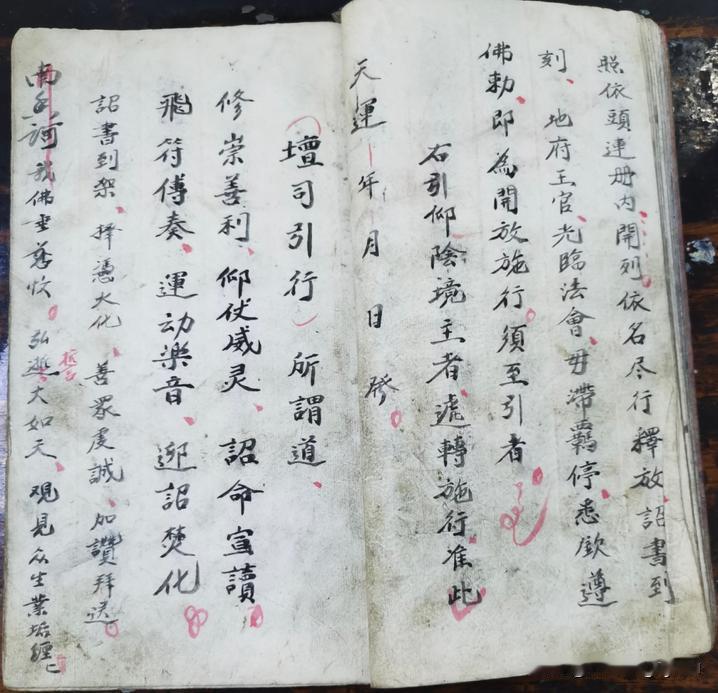 照依頭連册内開列依名尽行釋放詔書到
刻、地府王官、光臨法會、毋滯羈停、悉欽遵
佛勅、即為開放施行。須至引者
右引仰陰境主者、遞轉施行准此
天運 年 月 日 發。
(壇司引行)所謂道、
修崇善利、仰仗威灵、詔命宣讀
飛符傳奏、運动樂音、迎詔焚化
詔書到架、擇憑火化、善眾虔誠、加讚拜送。
南無訶 我佛 慈 。弘誓大如天、观見众生業垢纏